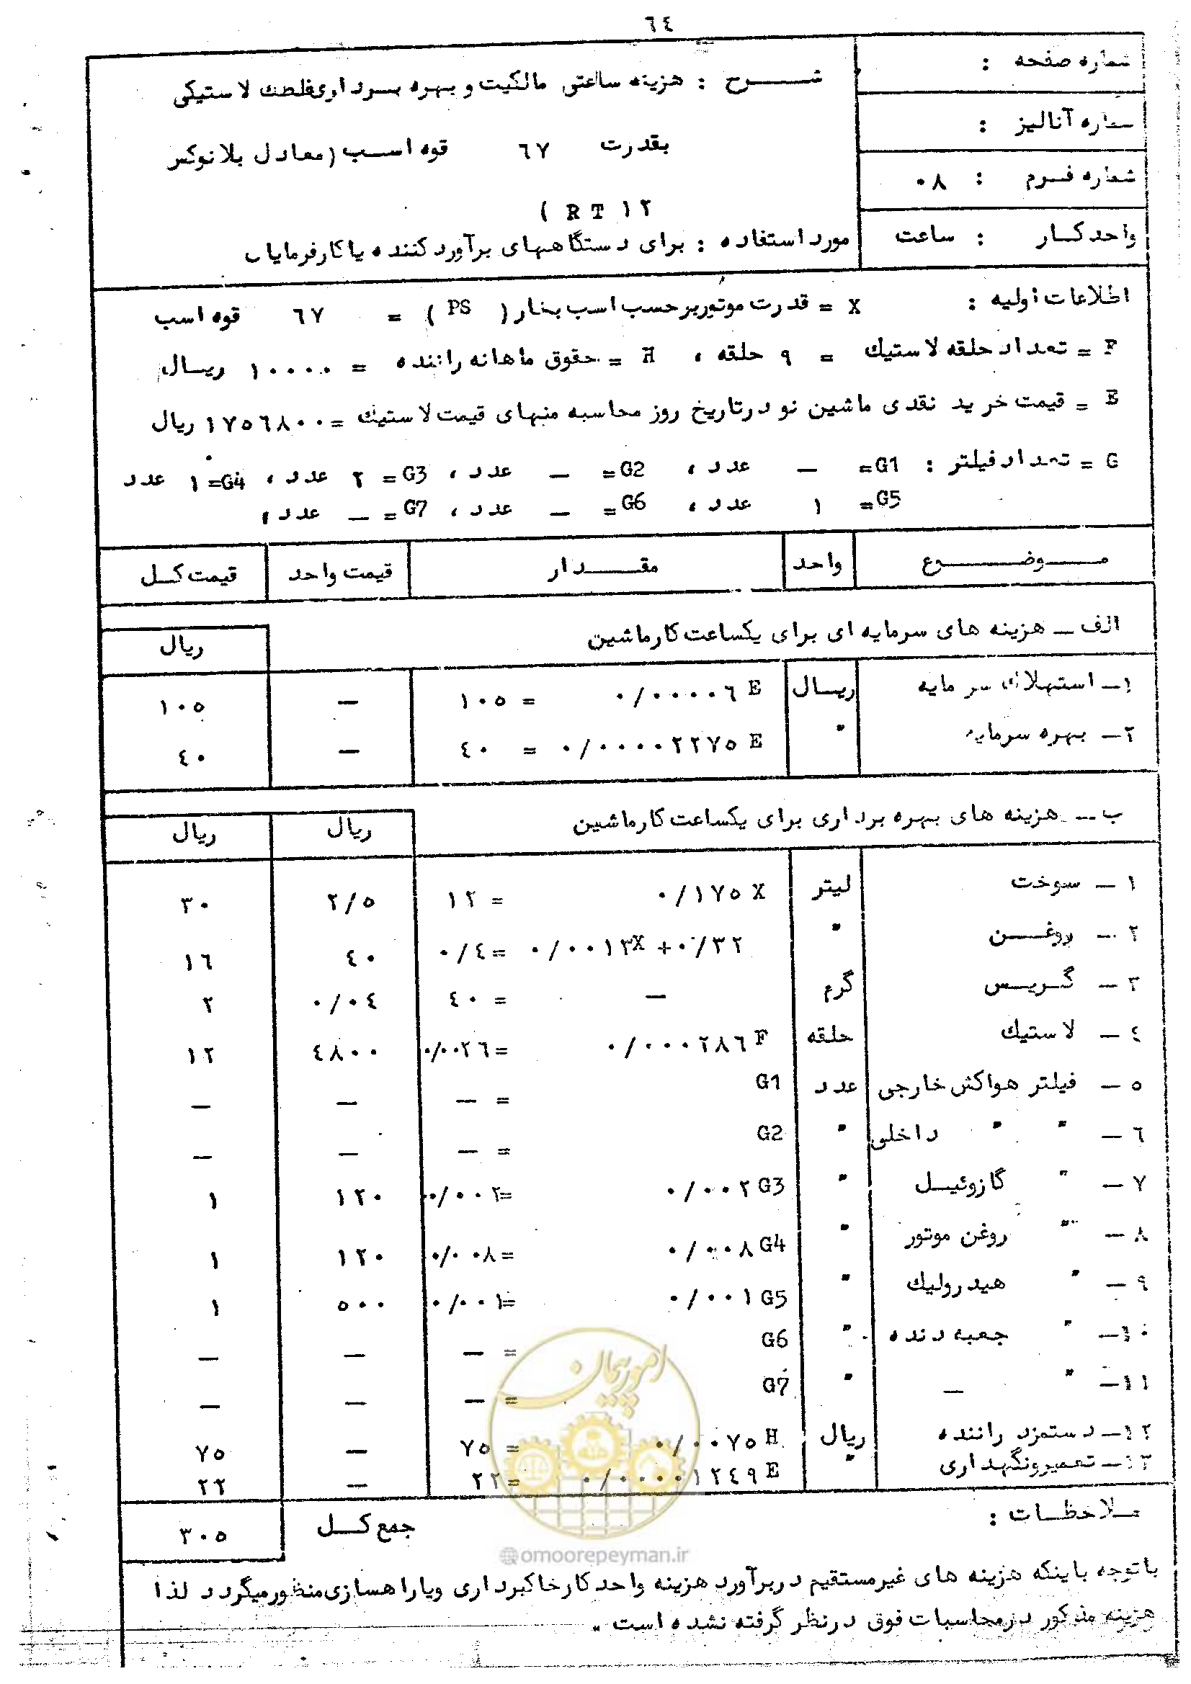 ٦٤
شماره صفحه :
شماره آنالیز :
شماره فرم : ٠٨
واحد کار : ساعت
شرح : هزینه ساعتی مالکیت و بهره برداری غلطك لاستیکی
بقدرت ٦٧ قوه اسب (معادل بلانوکس
( RT ١٢
مورد استفاده : برای دستگاههای برآورد کننده یا کارفرمایان
اطلاعات اولیه : X = قدرت موتور برحسب اسب بخار ( PS ) = ٦٧ قوه اسب
F = تعداد حلقه لاستیك = ٩ حلقه ، H = حقوق ماهانه راننده = ١٠٠٠٠ ریال
E = قیمت خرید نقدی ماشین نو در تاریخ روز محاسبه منهای قیمت لاستیك = ١٧٥٦٨٠٠ ریال
G = تعداد فیلتر : G1= — عدد ، G2= — عدد ، G3= ٢ عدد ، G4= ١ عدد
G5= ١ عدد ، G6= — عدد ، G7= — عدد ،
موضوع واحد مقدار قیمت واحد قیمت کل
الف — هزینه های سرمایه ای برای یکساعت کار ماشین ریال
١— استهلاك سرمایه ریال ٠/٠٠٠٠٦ E = ١٠٥ — ١٠٥
٢— بهره سرمایه " ٠/٠٠٠٠٢٢٧٥ E = ٤٠ — ٤٠
ب — هزینه های بهره برداری برای یکساعت کار ماشین ریال ریال
١ — سوخت لیتر ٠/١٧٥ X = ١٢ ٢/٥ ٣٠
٢ — روغن " ٠/٠٠١٣X +٠/٣٢ =٠/٤ ٤٠ ١٦
٣ — گریس گرم — = ٤٠ ٠/٠٤ ٢
٤ — لاستیك حلقه ٠/٠٠٠٢٨٦ F =٠/٠٠٢٦ ٤٨٠٠ ١٢
٥ — فیلتر هواکش خارجی عدد G1 = — — —
٦ — " " داخلی " G2 = — — —
٧ — " گازوئیل " ٠/٠٠٢ G3 =٠/٠٠٢ ١٢٠ ١
٨ — " روغن موتور " ٠/٠٠٨ G4 =٠/٠٠٨ ١٢٠ ١
٩ — " هیدرولیك " ٠/٠٠١ G5 =٠/٠٠١ ٥٠٠ ١
١٠— " جعبه دنده " G6 = — — —
١١— " — " G7 = — — —
١٢— دستمزد راننده ریال ٠/٠٠٧٥ H = ٧٥ — ٧٥
١٣— تعمیر و نگهداری " ٠/٠٠٠٠١٢٤٩ E =٢٢ — ٢٢
ملاحظات : جمع کل ٣٠٥
با توجه باینکه هزینه های غیرمستقیم در برآورد هزینه واحد کار خاکبرداری ویا راهسازی منظور میگردد لذا
هزینه مذکور در محاسبات فوق در نظر گرفته نشده است .
امور پیمان
@omoorepeyman.ir